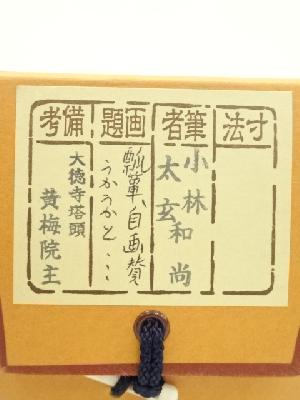 寸法
筆者
小林
太玄和尚
画題
瓢箪自画賛
うかうかと…
備考
大徳寺塔頭
黄梅院主